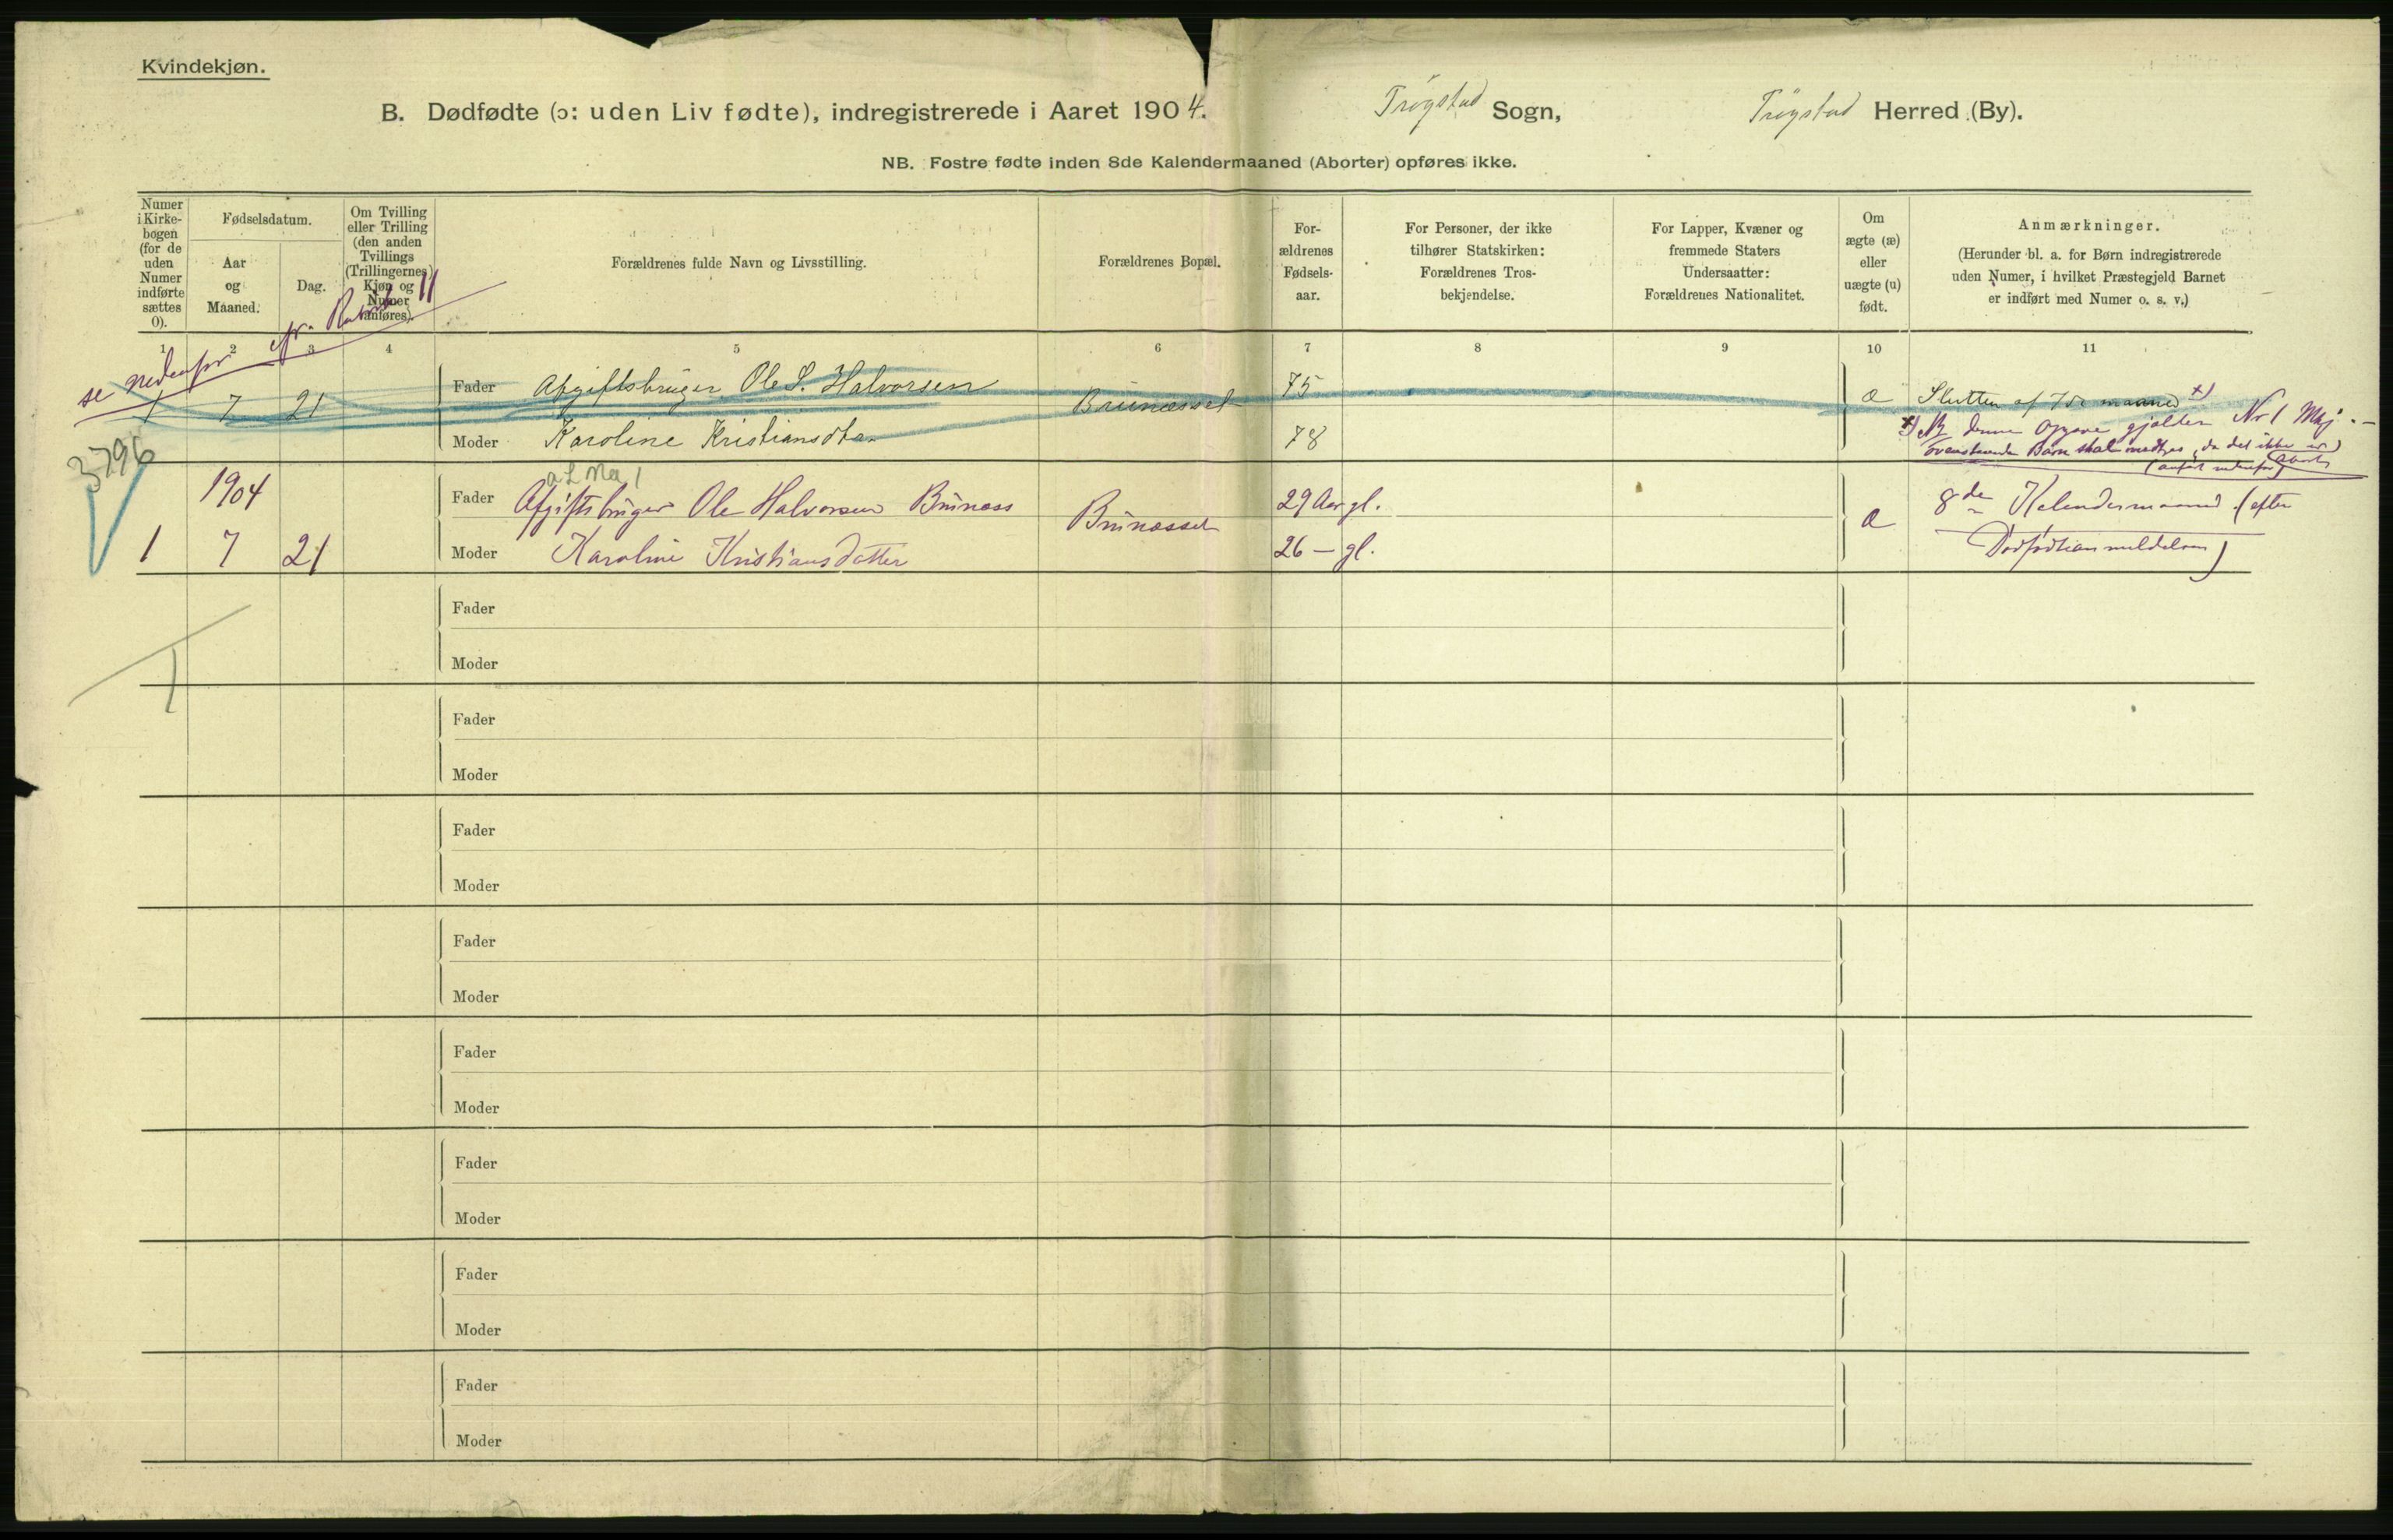 Kvindekjøn.
B. Dødfødte (ɔ: uden Liv fødte), indregistrerede i Aaret 1904. Trögstad Sogn, Trögstad Herred (By).
NB. Fostre fødte inden 8de Kalendermaaned (Aborter) opføres ikke.
Numer i Kirke-bogen (for de uden Numer indførte sættes 0).
Fødselsdatum.
Aar og Maaned.
Dag.
Om Tvilling eller Trilling (den anden Tvillings (Trillingernes) Kjøn og Numer anføres).
Forældrenes fulde Navn og Livsstilling.
Forældrenes Bopæl.
For-ældrenes Fødsels-aar.
For Personer, der ikke tilhører Statskirken: Forældrenes Tros-bekjendelse.
For Lapper, Kvæner og fremmede Staters Undersaatter: Forældrenes Nationalitet.
Om ægte (æ) eller uægte (u) født.
Anmærkninger.
(Herunder bl. a. for Børn indregistrerede uden Numer, i hvilket Præstegjeld Barnet er indført med Numer o. s. v.)
1 2 3 4 5 6 7 8 9 10 11
se nedenfor cfr. Rubrik 11
1 7 21 Fader Afgiftsbruger Ole S. Halvorsen Brunæsset 75 æ Slutten af 7de maaned x)
Moder Karoline Kristiansdtr. 78
x) NB denne Opgave gjælder Nr 1 Mkj. -
Ovenstaaende Barn skal medtages, da det ikke er Abort
(anført nedenfor)
3796
1904 Fader Afgiftsbruger Ole Halvorsen Brunæss Brunæsset 29 Aar gl. æ 8de Kalendermaaned (efter
1 7 21 Moder Karoline Kristiansdatter 26 — gl. Dødfødtianmeldelsen)
Fader
Moder
1
Fader
Moder
Fader
Moder
Fader
Moder
Fader
Moder
Fader
Moder
Fader
Moder
Fader
Moder